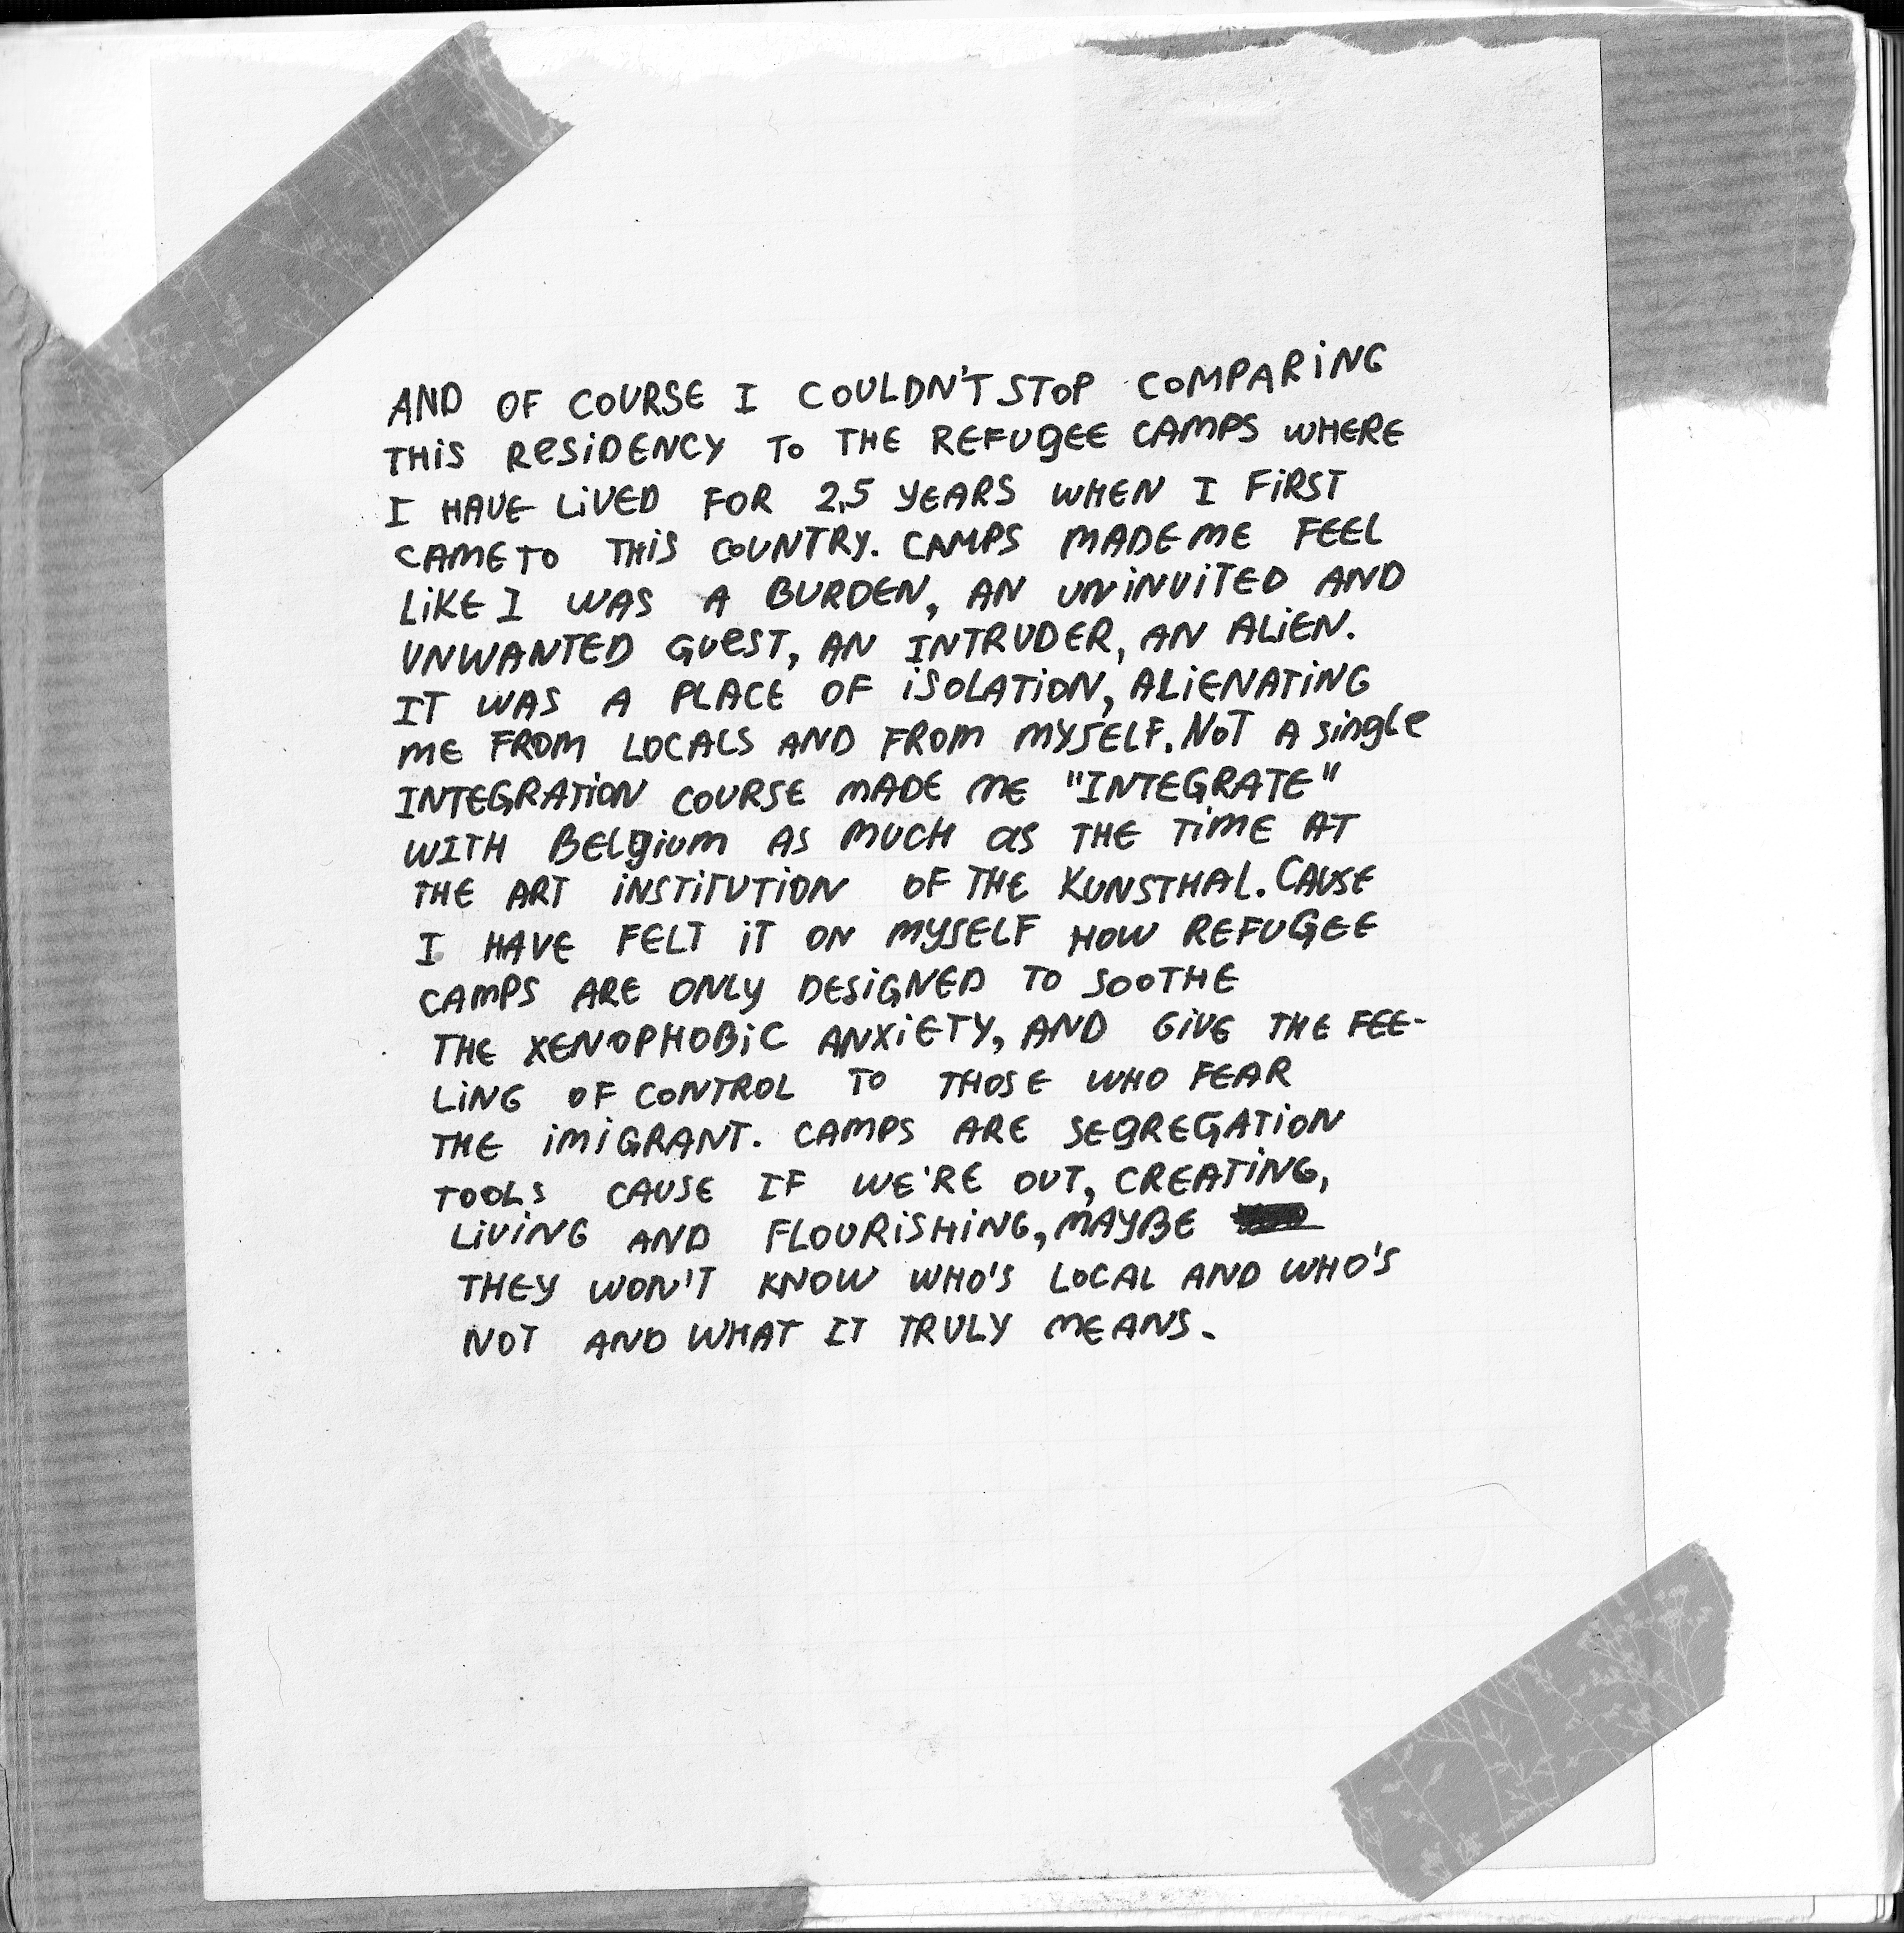 AND OF COURSE I COULDN'T STOP COMPARING
THiS ReSiDENCY To THE REFUgEE CAMPS WHERE
I HAVE LiVED FOR 2,5 YEARS WHEN I FiRST
CAME TO THiS COUNTRY. CAMPS MADE ME FEEL
LiKE I WAS A BURDEN, AN UNiNViTED AND
UNWANTED GUeST, AN INTRUDER, AN ALiEN.
IT WAS A PLACE OF iSOLATiON, ALiENATiNG
ME FROM LOCALS AND FROM MYSELF. NoT A single
INTEGRATiON COURSE MADE ME "INTEGRATE"
WITH BELgium AS MUCH as THE TiME AT
THE ART iNSTiTUTiON OF THE KUNSTHAL. CAUSE
I HAVE FELT iT ON MYSELF HOW REFUGEE
CAMPS ARE ONLY DESiGNED TO SOOTHE
THE XENOPHOBiC ANXiETY, AND GiVE THE FEE-
LiNG OF CONTROL TO THOSE WHO FEAR
THE iMiGRANT. CAMPS ARE SEgREGATiON
TOOLS CAUSE IF WE'RE OUT, CREATiNG,
LiViNG AND FLOURiSHiNG, MAYBE
THEY WON'T KNOW WHO'S LOCAL AND WHO'S
NOT AND WHAT IT TRULY MEANS.